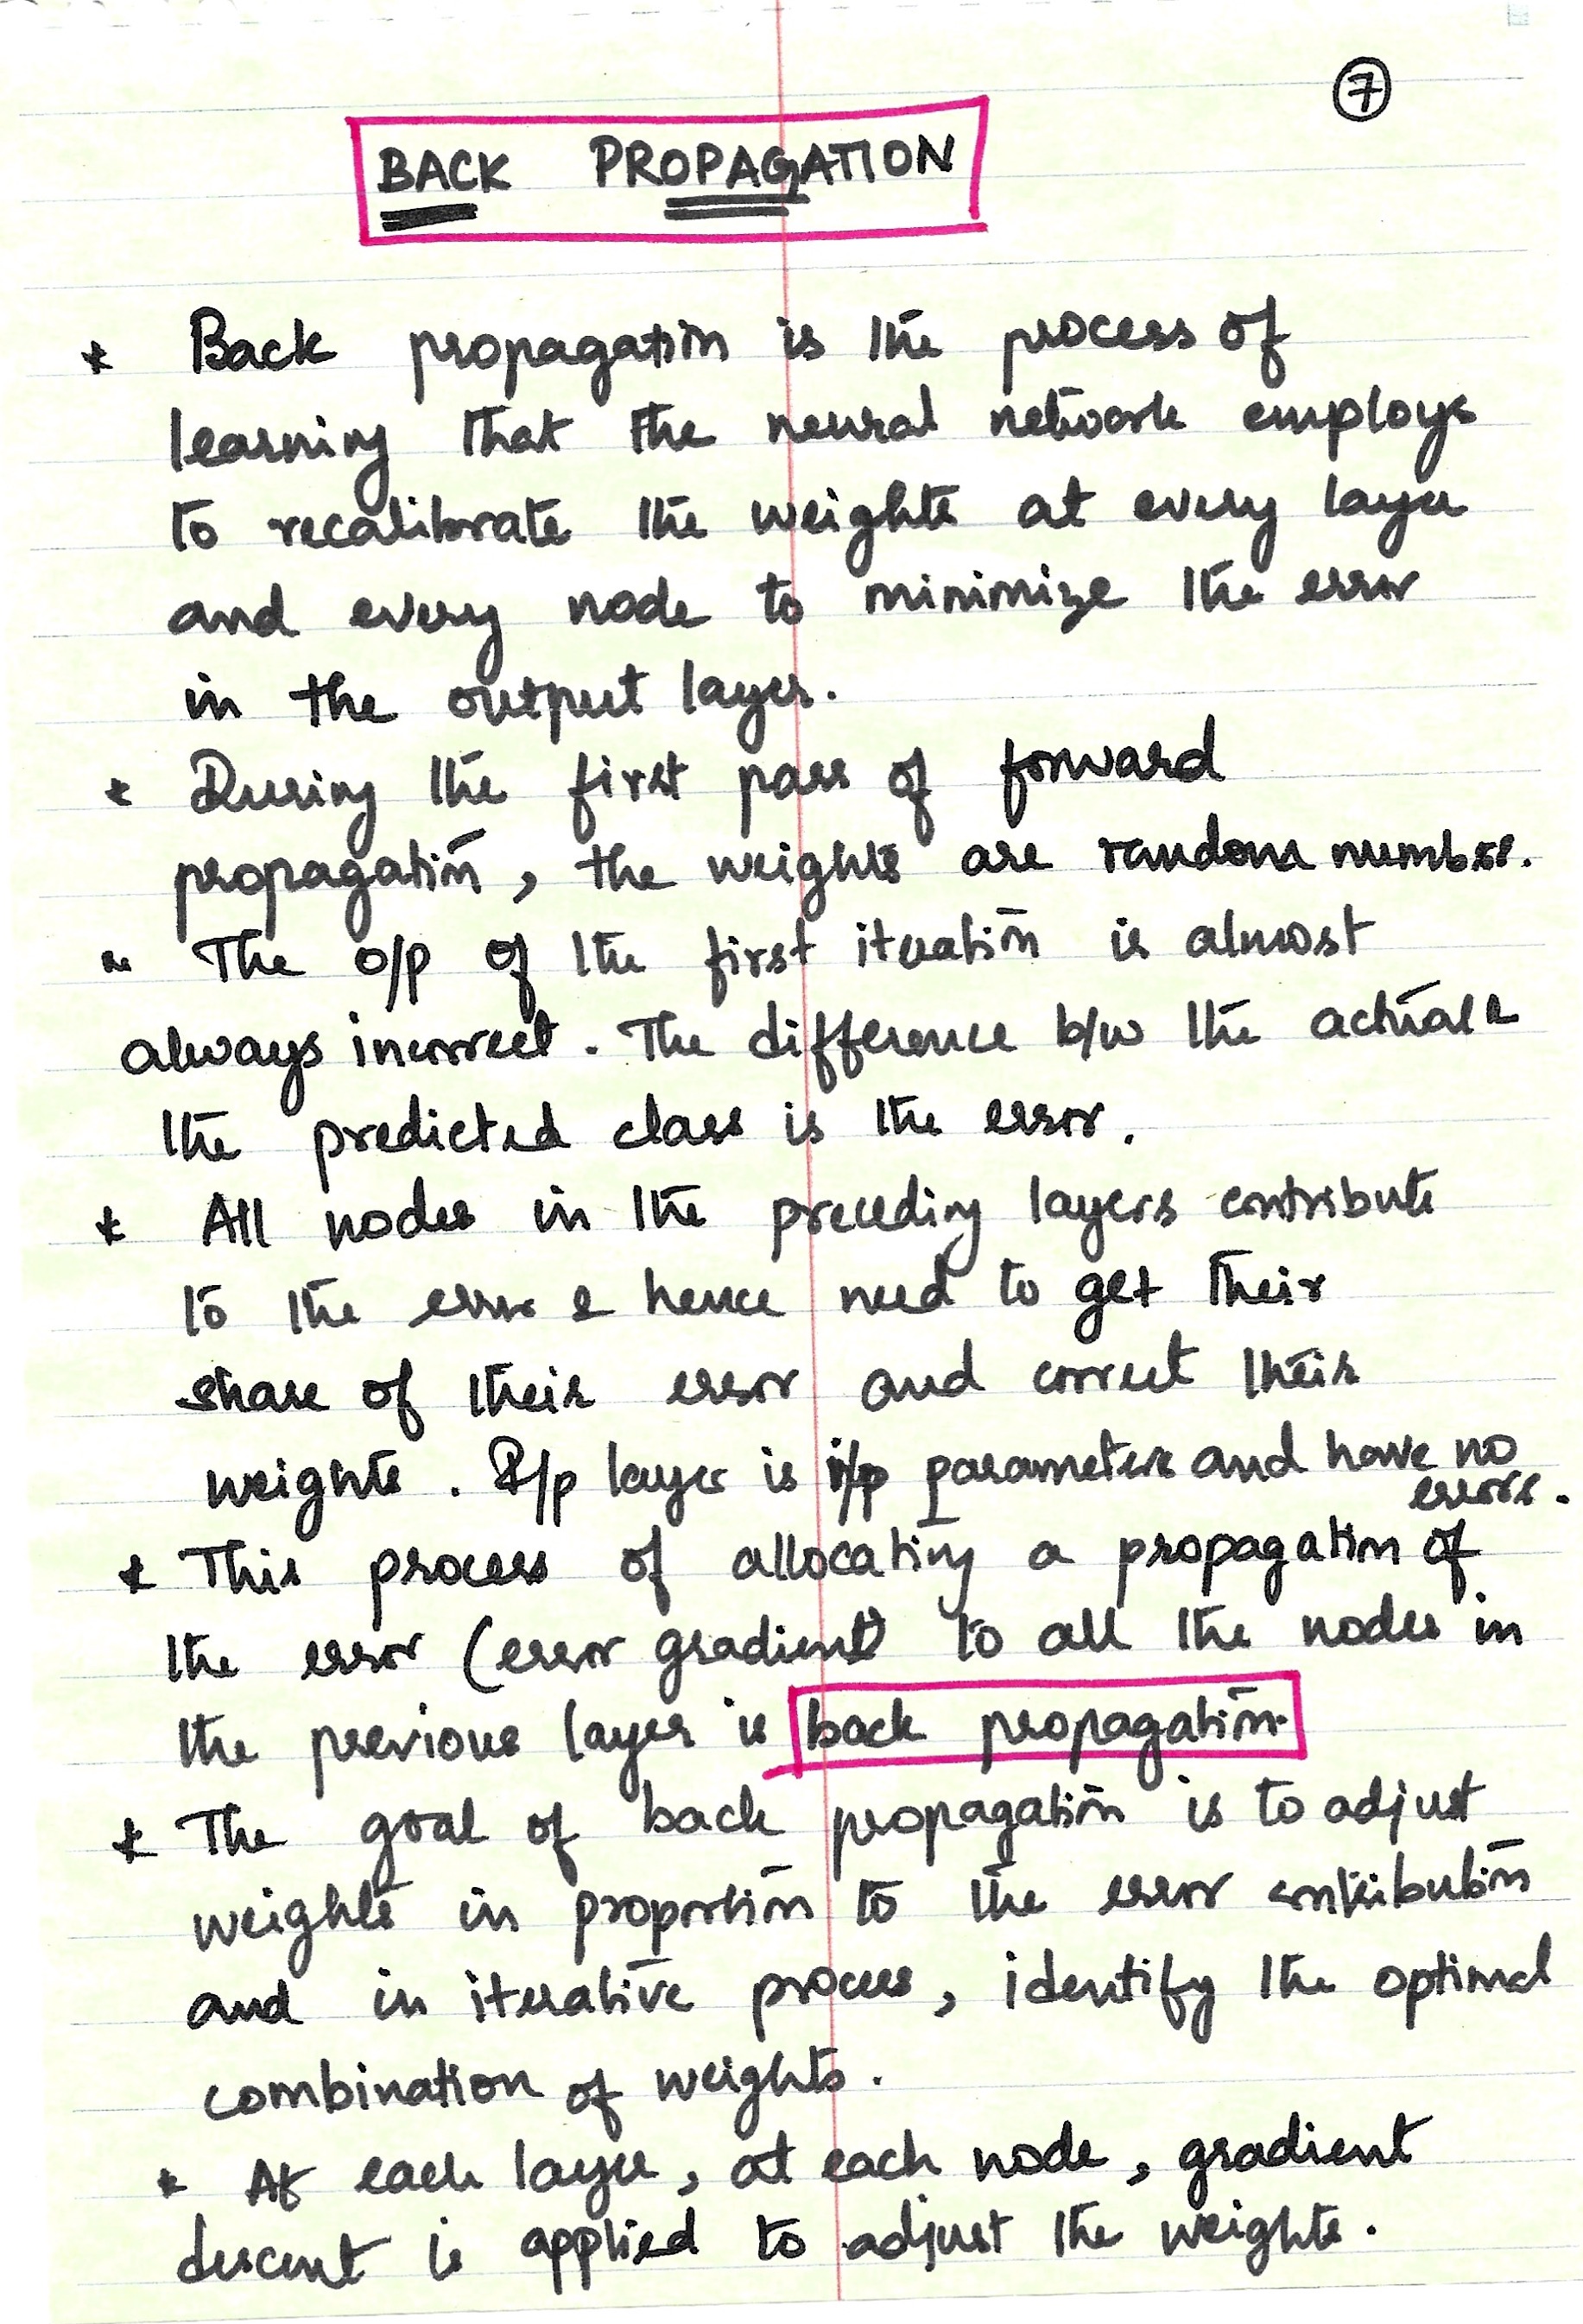 7
BACK PROPAGATION
* Back propagation is the process of
learning that the neural network employs
to recalibrate the weights at every layer
and every node to minimize the error
in the output layer.
* During the first pass of forward
propagation, the weights are random number.
* The o/p of the first iteration is almost
always incorrect. The difference b/w the actual &
the predicted class is the error.
* All nodes in the preceding layers contribute
to the error & hence need to get their
share of their error and correct their
weights. I/p layer is i/p parameters and have no
errors.
* This process of allocating a propagation of
the error (error gradient) to all the nodes in
the previous layer is back propagation.
* The goal of back propagation is to adjust
weights in proportion to the error contribution
and in iterative process, identify the optimal
combination of weights.
* At each layer, at each node, gradient
descent is applied to adjust the weights.